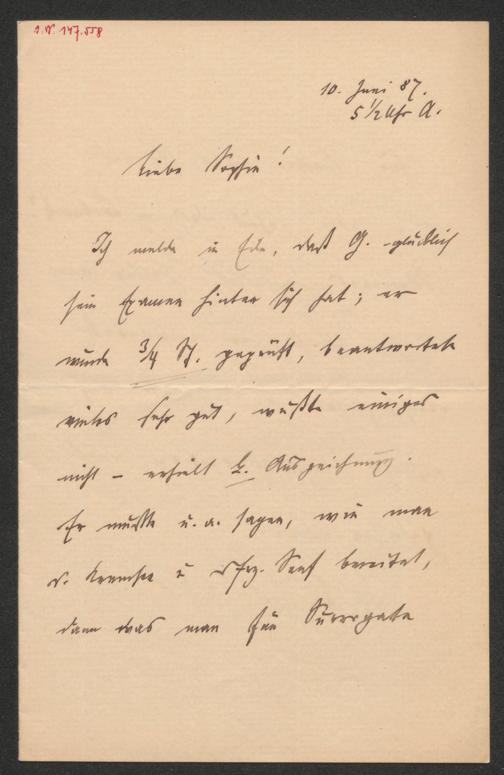 I.N. 147.558
10. Juni 87.
5 1/2 Uhr A.
Liebe Sophie!
Ich melde in Eile, daß G. glücklich
sein Examen hinter sich hat; er
wurde 3/4 St. geprüft, beantwortete
vieles sehr gut, wußte einiges
nicht – erhielt k. Auszeichnung.
Er mußte u. a. sagen, wie man
d. Kremser u. frz. Senf bereitet,
dann was man für Surrogate